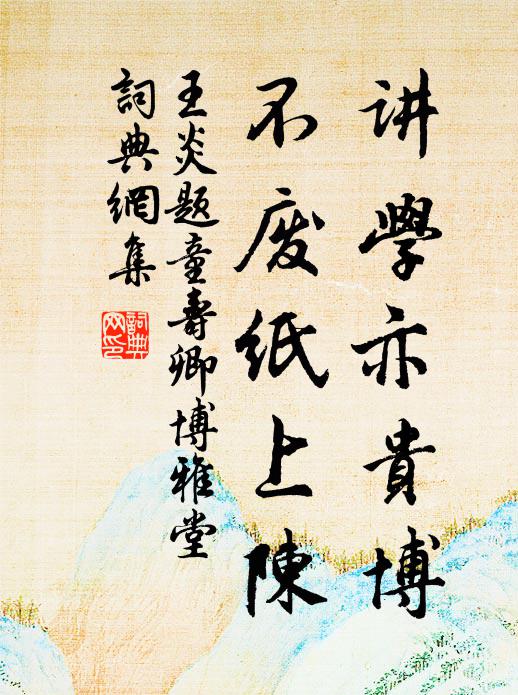 讲學亦貴博
不废紙上陳
王炎题童壽卿博雅堂
詞典網集
詞典网印